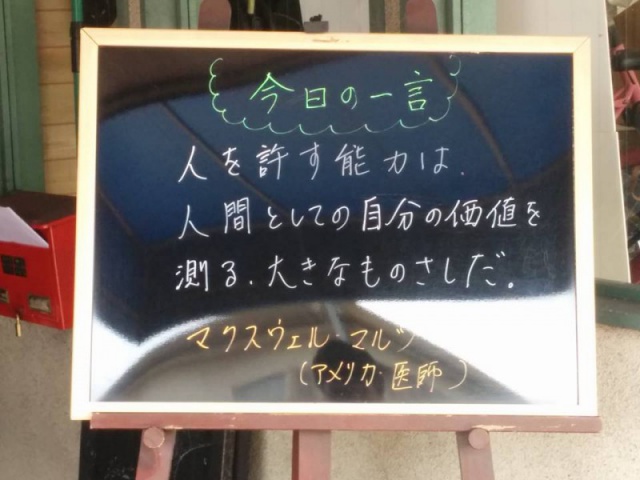 今日の一言
人を許す能力は、
人間としての自分の価値を
測る、大きなものさしだ。
マクスウェル マルツ
(アメリカ・医師)